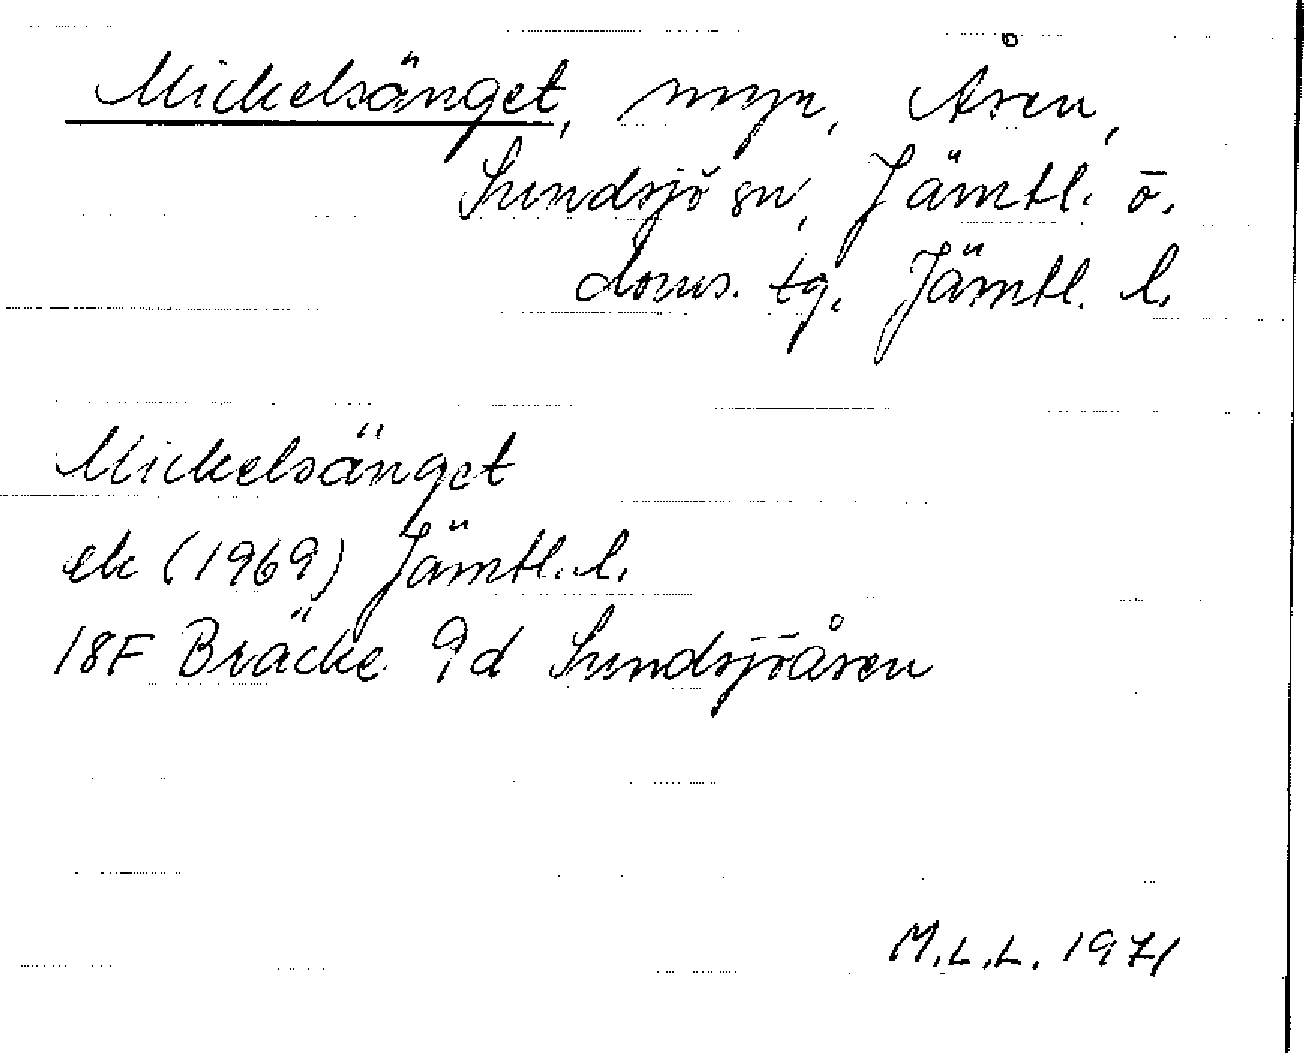 Mickelsänget, myr, Åsen,
Sundsjö sn, Jämtl. ö.
doms. tg, Jämtl. l.
Mickelsänget
ek (1969) Jämtl. l.
18F Bräcke 9d Sundsjöåsen
M.L.L. 1971